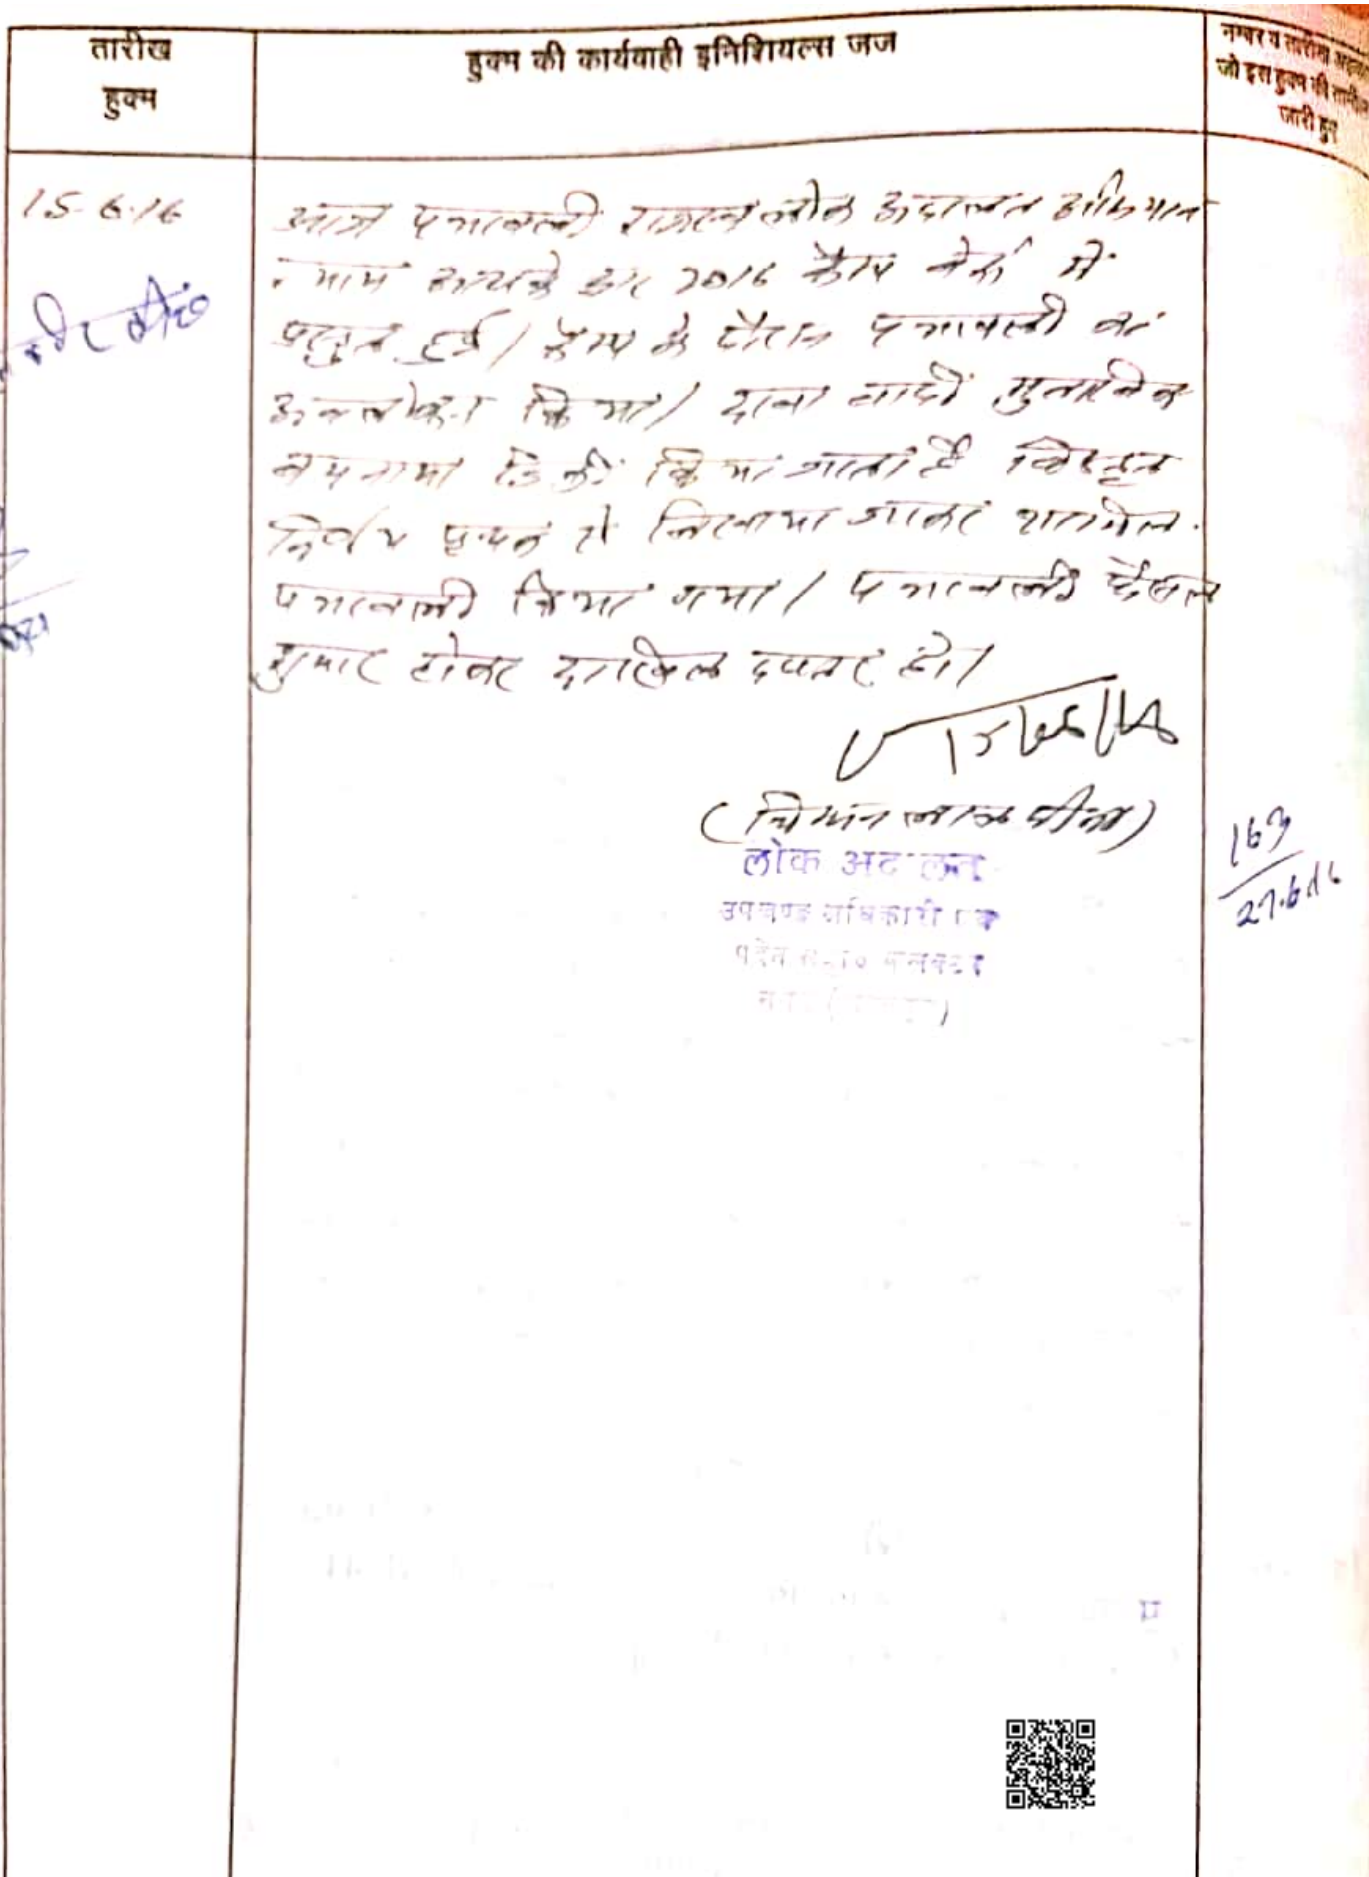 तारीख
हुक्म
हुक्म की कार्यवाही इनिशियल्स जज
नम्बर व तारीख
जो इस हुक्म की तामील
जारी हुए
15.6.16
आज पत्रावली राजस्व लोक अदालत अभियान
न्याय आपके द्वार 2016 कैम्प में
प्रस्तुत हुई। कैम्प के दौरान पत्रावली का
अवलोकन किया। दावा वादी मुताबिक
बयनामा डिक्री किया जाता है विस्तृत
निर्णय पृथक से लिखाया जाकर शामिल
पत्रावली किया गया। पत्रावली फैसल
शुमार होकर दाखिल दफ्तर हो।
15/06/16
(चिमन लाल मीना)
लोक अदालत
उपखण्ड अधिकारी एवं
पदेन सहा० कलक्टर
163
27.6.16